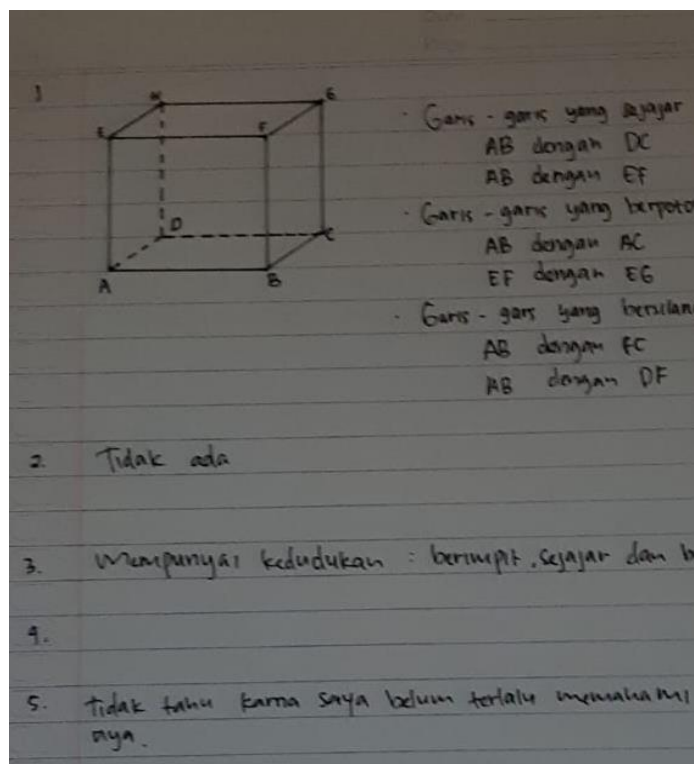 1
H G
E F
D C
A B
· Garis - garis yang sejajar
AB dengan DC
AB dengan EF
· Garis - garis yang berpoto
AB dengan AC
EF dengan EG
· Garis - gars yang bersilan
AB dengan FC
AB dengan DF
2. Tidak ada
3. Mempunyai kedudukan : berimpit, sejajar dan b
4.
5. tidak tahu karna saya belum terlalu memahami
nya.